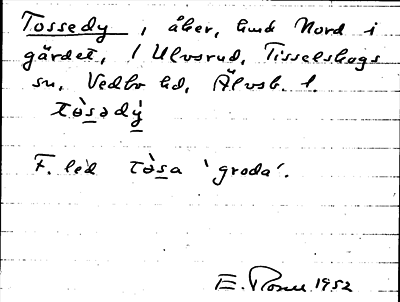 Tossedy, åker, hmd Nord i
gärdet, 1 Ulvsrud, Tisselskogs
sn, Vedbo hd, Älvsb. l.
tòsədý
F. led tòsa 'groda'.
E. 1952